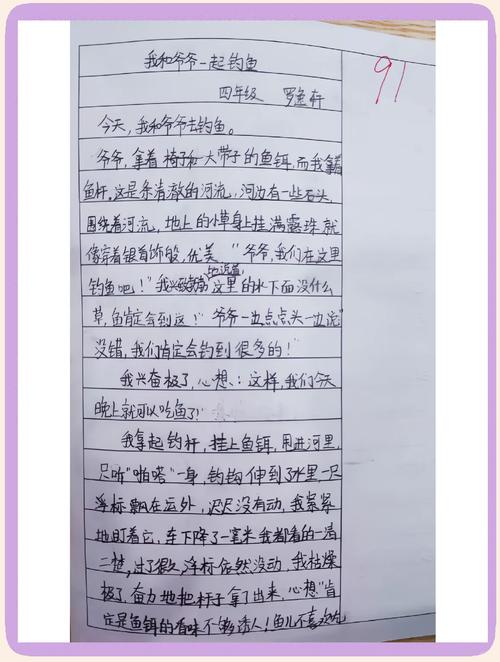 我和爷爷一起钓鱼
91
四年级 罗
今天,我和爷爷去钓鱼。
爷爷,拿着椅子和一大带子的鱼饵,而我拿着
鱼杆,这是条清澈的河流,河边有一些石头,
围绕着河流,地上的小草身上挂满露珠就
像穿着银首饰般,优美“爷爷,我们在这里
钓鱼吧!”我兴致勃勃地说道,“这里的水下面没什么
草,鱼肯定会到这!”爷爷一边点点头一边说“
没错,我们肯定会钓到很多的!”
我兴奋极了,心想:这样,我们今天
晚上就可以吃鱼了!
我拿起钓杆,挂上鱼饵,甩进河里,
只听“啪嗒”一身,钓钩伸到了水里一尺
浮标飘在远外,迟尺没有动,我紧紧
地盯着它,车下降了一毫米我都看的一清
二楚,过了很久浮标依然没动,我枯燥
极了,奋力地把杆子拿了出来,心想“肯
定是鱼饵的香味不够诱人!鱼儿不喜欢吃